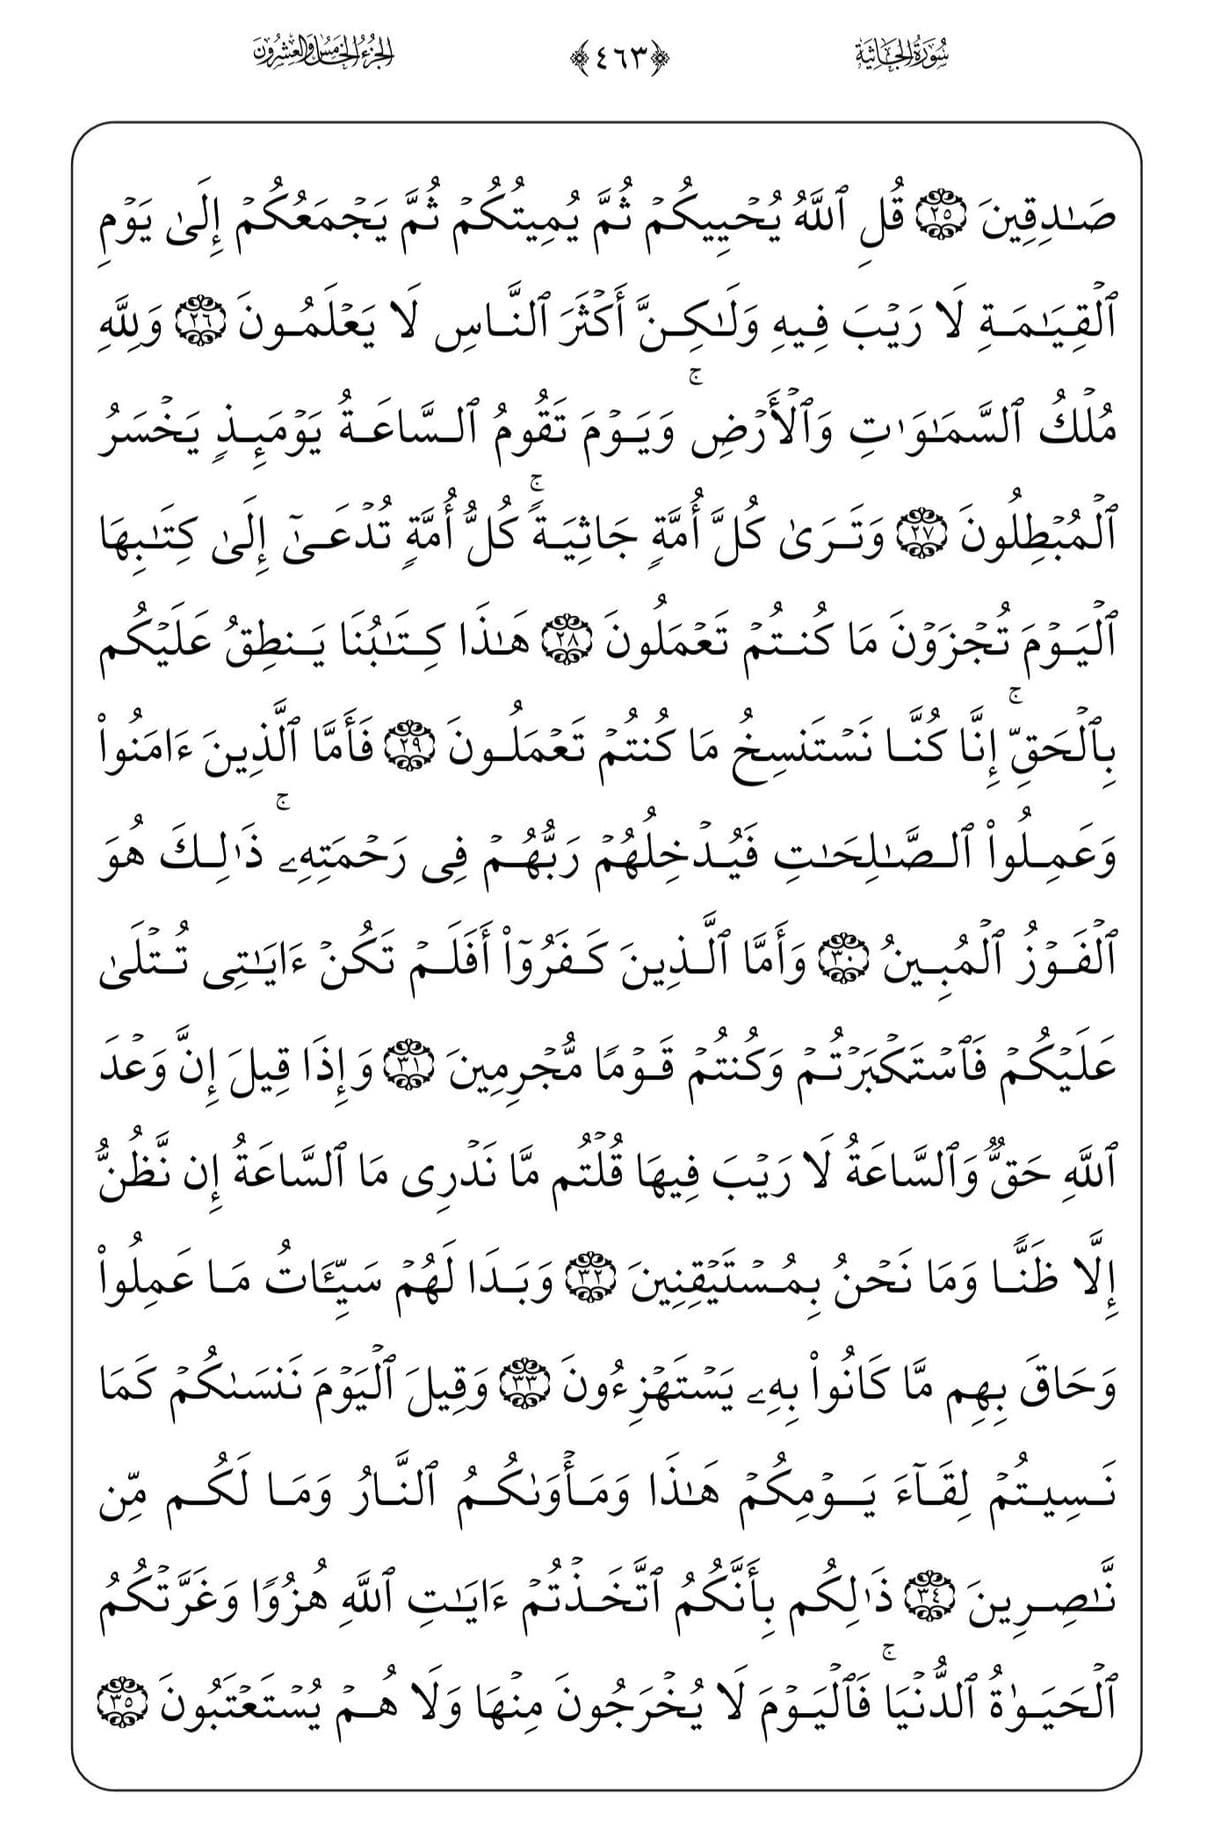 سُورَةُ الجَاثِيَة
﴿٤٦٣﴾
الجُزْءُ الخَامِسُ وَالعِشْرُونَ
صَـٰدِقِينَ ٢٥ قُلِ ٱللَّهُ يُحۡيِيكُمۡ ثُمَّ يُمِيتُكُمۡ ثُمَّ يَجۡمَعُكُمۡ إِلَىٰ يَوۡمِ
ٱلۡقِيَـٰمَةِ لَا رَيۡبَ فِيهِ وَلَـٰكِنَّ أَكۡثَرَ ٱلنَّاسِ لَا يَعۡلَمُونَ ٢٦ وَلِلَّهِ
مُلۡكُ ٱلسَّمَـٰوَٰتِ وَٱلۡأَرۡضِۚ وَيَوۡمَ تَقُومُ ٱلسَّاعَةُ يَوۡمَئِذٍ يَخۡسَرُ
ٱلۡمُبۡطِلُونَ ٢٧ وَتَرَىٰ كُلَّ أُمَّةٍ جَاثِيَةًۚ كُلُّ أُمَّةٍ تُدۡعَىٰٓ إِلَىٰ كِتَـٰبِهَا
ٱلۡيَوۡمَ تُجۡزَوۡنَ مَا كُنتُمۡ تَعۡمَلُونَ ٢٨ هَـٰذَا كِتَـٰبُنَا يَنطِقُ عَلَيۡكُم
بِٱلۡحَقِّۚ إِنَّا كُنَّا نَسۡتَنسِخُ مَا كُنتُمۡ تَعۡمَلُونَ ٢٩ فَأَمَّا ٱلَّذِينَ ءَامَنُواْ
وَعَمِلُواْ ٱلصَّـٰلِحَـٰتِ فَيُدۡخِلُهُمۡ رَبُّهُمۡ فِى رَحۡمَتِهِۦۚ ذَٰلِكَ هُوَ
ٱلۡفَوۡزُ ٱلۡمُبِينُ ٣٠ وَأَمَّا ٱلَّذِينَ كَفَرُوٓاْ أَفَلَمۡ تَكُنۡ ءَايَـٰتِى تُتۡلَىٰ
عَلَيۡكُمۡ فَٱسۡتَكۡبَرۡتُمۡ وَكُنتُمۡ قَوۡمًا مُّجۡرِمِينَ ٣١ وَإِذَا قِيلَ إِنَّ وَعۡدَ
ٱللَّهِ حَقٌّ وَٱلسَّاعَةُ لَا رَيۡبَ فِيهَا قُلۡتُم مَّا نَدۡرِى مَا ٱلسَّاعَةُ إِن نَّظُنُّ
إِلَّا ظَنًّا وَمَا نَحۡنُ بِمُسۡتَيۡقِنِينَ ٣٢ وَبَدَا لَهُمۡ سَيِّـَٔاتُ مَا عَمِلُواْ
وَحَاقَ بِهِم مَّا كَانُواْ بِهِۦ يَسۡتَهۡزِءُونَ ٣٣ وَقِيلَ ٱلۡيَوۡمَ نَنسَىٰكُمۡ كَمَا
نَسِيتُمۡ لِقَآءَ يَوۡمِكُمۡ هَـٰذَا وَمَأۡوَىٰكُمُ ٱلنَّارُ وَمَا لَكُم مِّن
نَّـٰصِرِينَ ٣٤ ذَٰلِكُم بِأَنَّكُمُ ٱتَّخَذۡتُمۡ ءَايَـٰتِ ٱللَّهِ هُزُوًا وَغَرَّتۡكُمُ
ٱلۡحَيَوٰةُ ٱلدُّنۡيَاۚ فَٱلۡيَوۡمَ لَا يُخۡرَجُونَ مِنۡهَا وَلَا هُمۡ يُسۡتَعۡتَبُونَ ٣٥